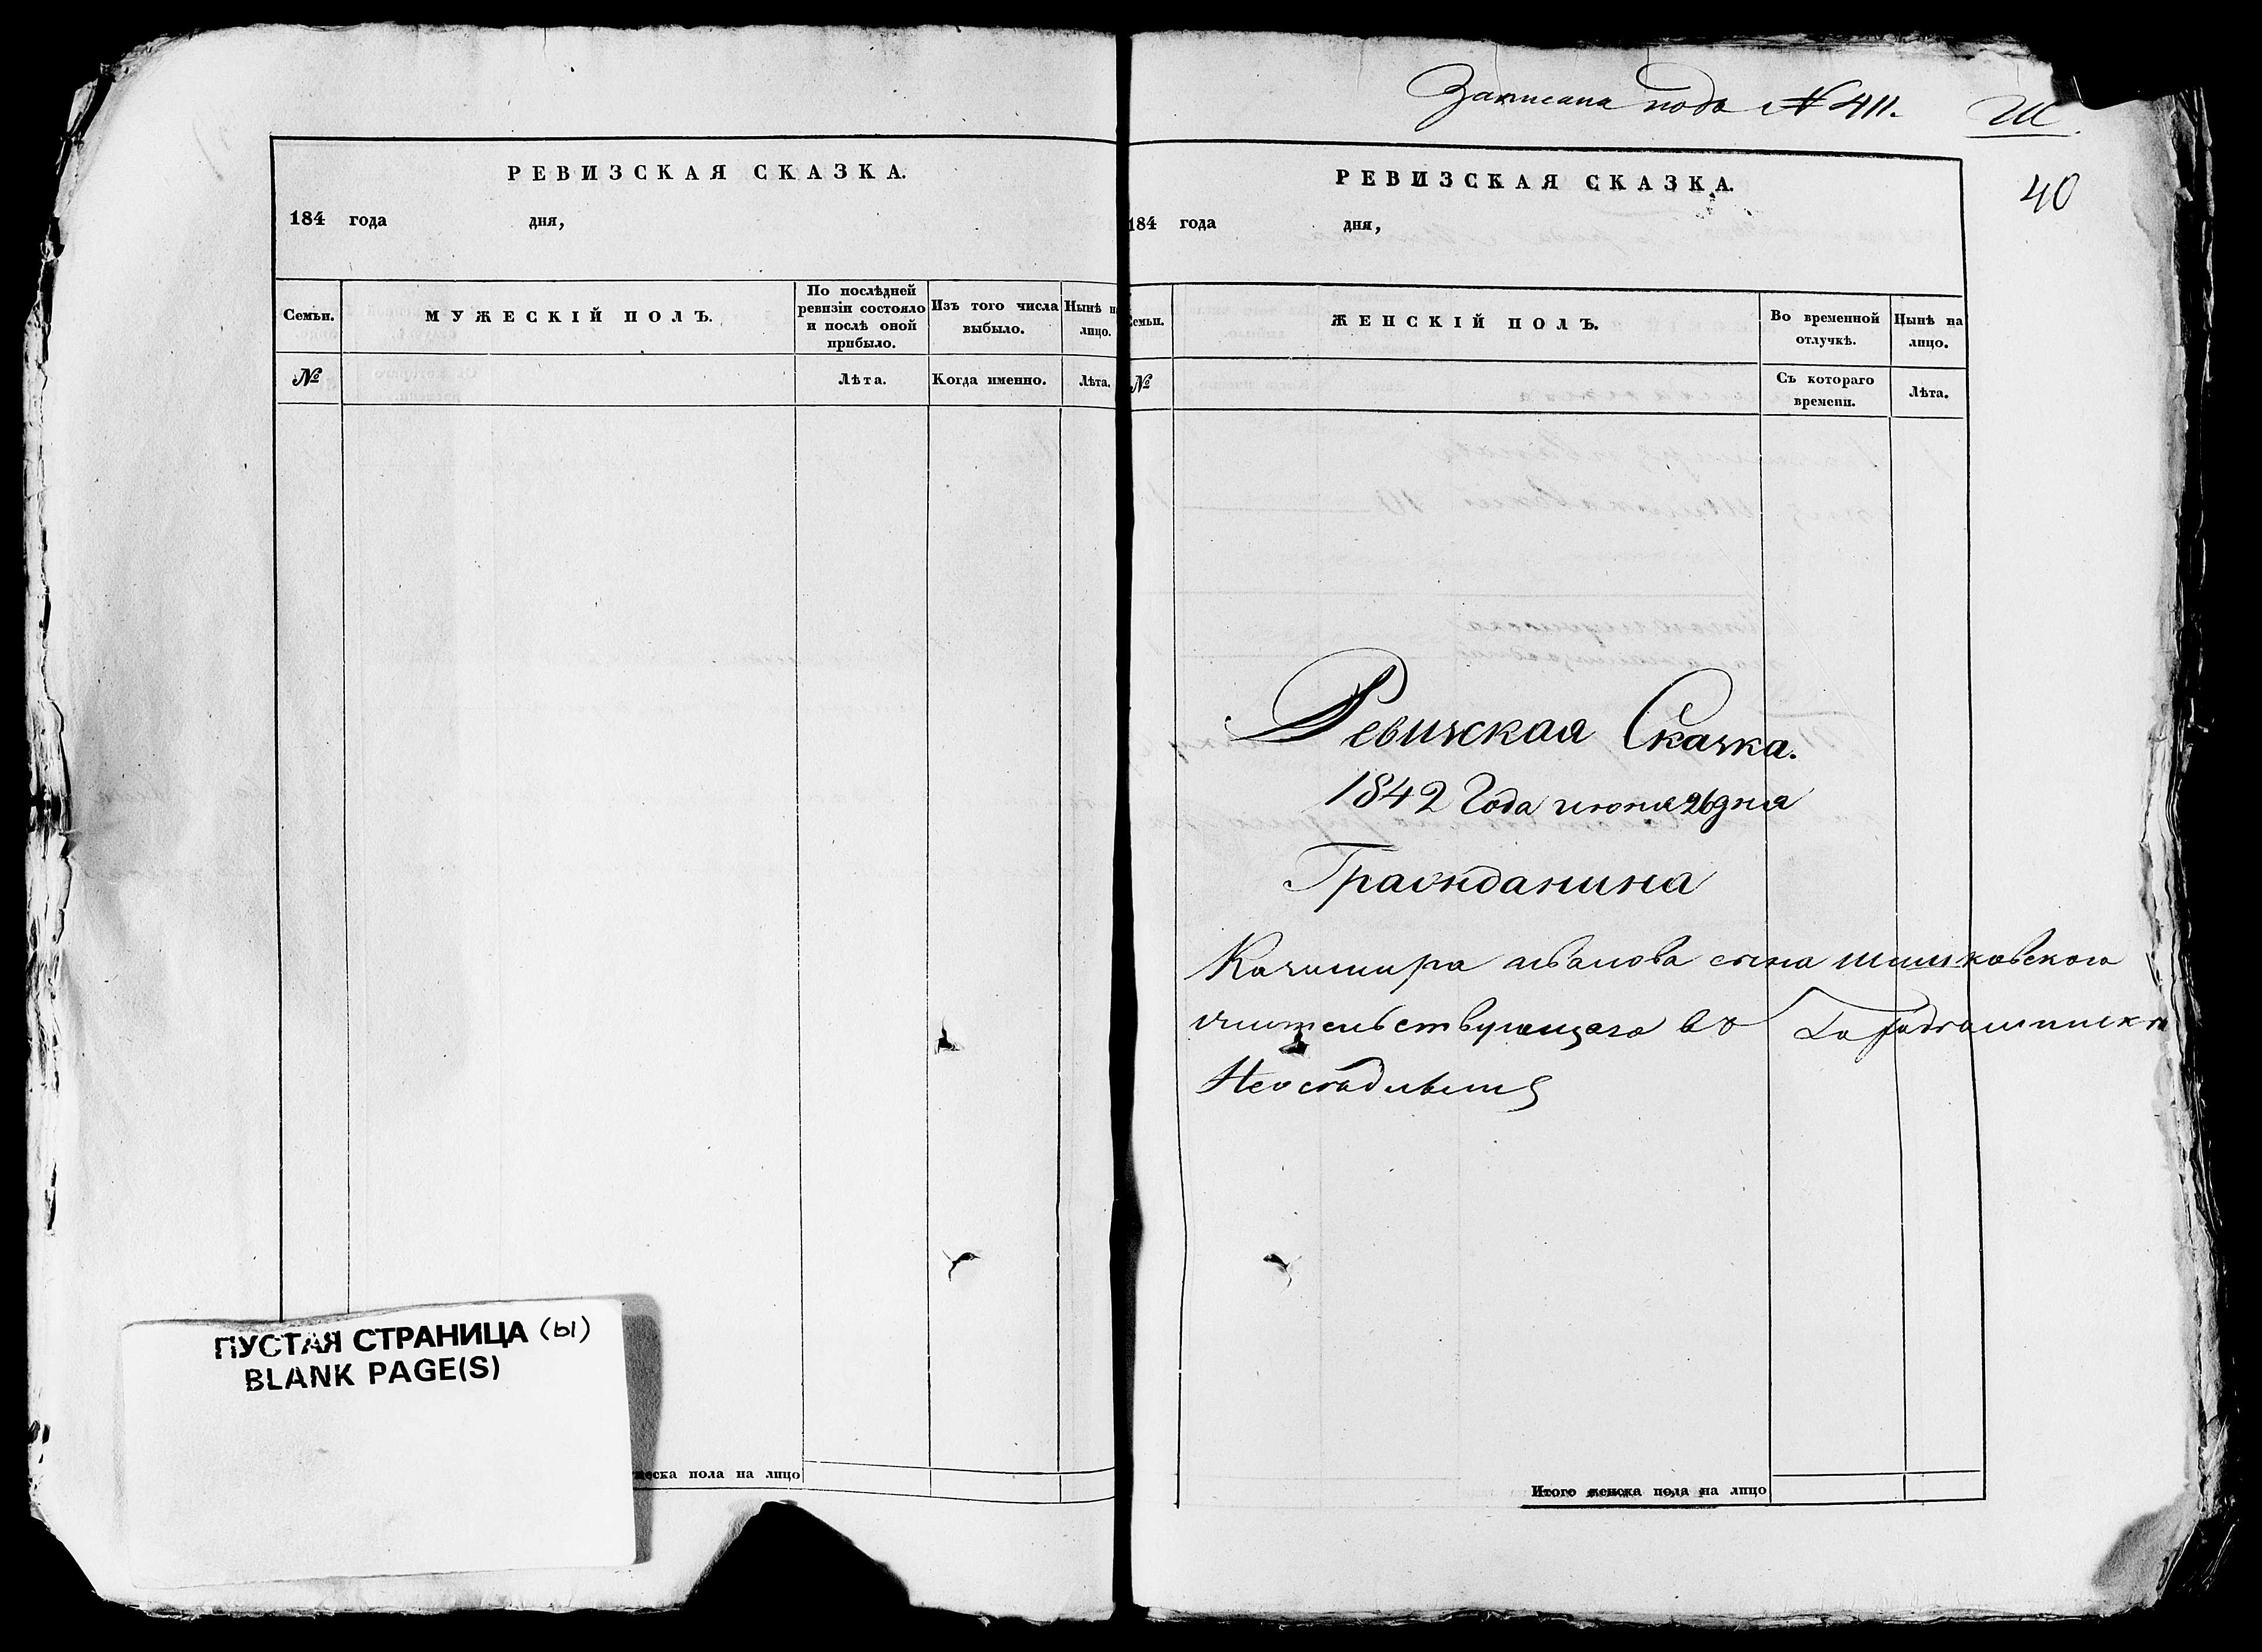 РЕВИЗСКАЯ СКАЗКА.
184 года дня,
Семьи.
МУЖЕСКІЙ ПОЛЪ.
По послѣдней
ревизіи состояло
и послѣ оной
прибыло.
Изъ того числа
выбыло.
Нынѣ на
лицо.
№
Лѣта.
Когда именно.
Лѣта.
ПУСТАЯ СТРАНИЦА (ы)
BLANK PAGE(S)
жеска пола на лицо
Записана подъ № 411.
Ш.
40
РЕВИЗСКАЯ СКАЗКА.
184 года дня,
Семьи.
ЖЕНСКІЙ ПОЛЪ.
Во временной
отлучкѣ.
Нынѣ на
лицо.
№
Съ котораго
времени.
Лѣта.
Ревизская Сказка.
1842 Года июня 26 дня
Гражданина
Казимира сына Шишковского
жительствующаго въ
Итого женска пола на лицо